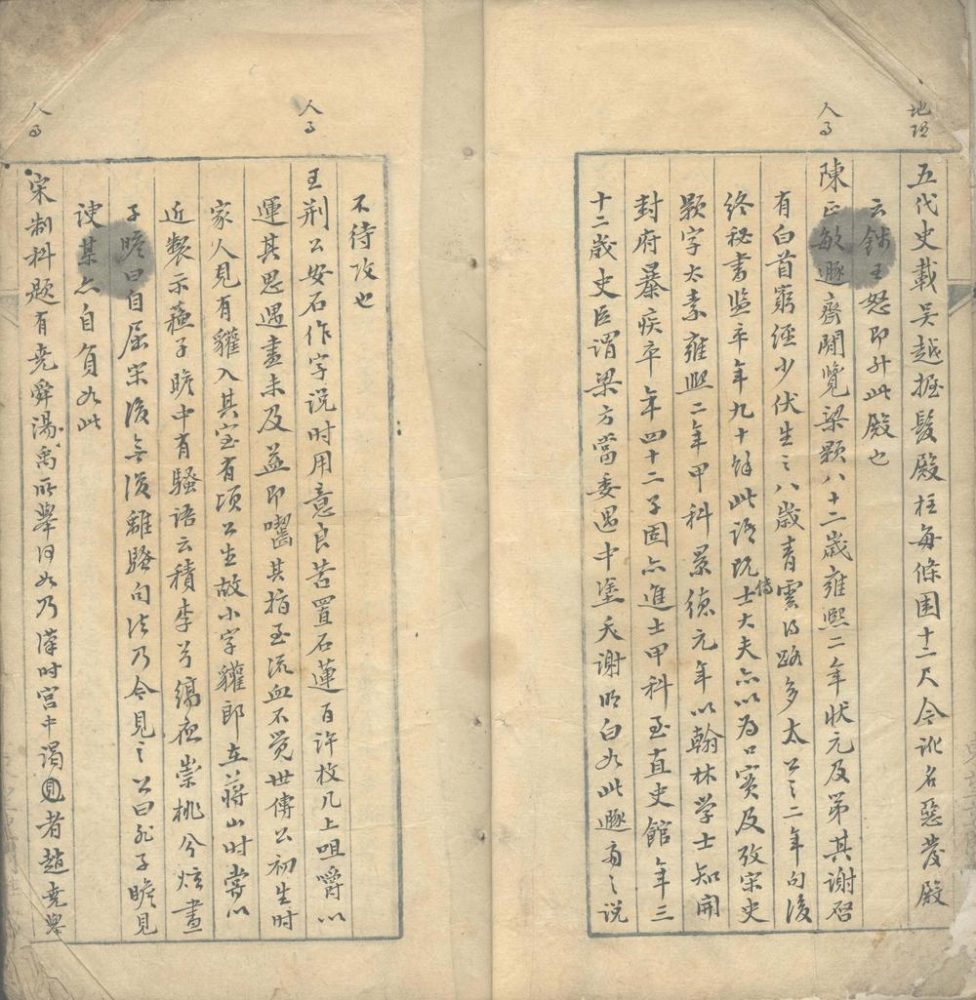 地理
五代史載吴越握髮殿柱每條围十二尺今訛名惡發殿
云錢王怒即升此殿也
人事
陳正敏遯齋閒覽梁颢八十二歲雍熙二年状元及第其谢啓
有白首窮經少伏生之八歲青雲得路多太公之二年句後
终秘書监卒年九十餘此語既傳士大夫亦以为口实及攷宋史
颢字太素雍熙二年甲科景德元年以翰林学士知開
封府暴疾卒年四十二子固亦進士甲科至直史館年三
十二歲史臣谓梁方當委遇中塗夭谢明白如此遯斋之说
不待攻也
人事
王荆公安石作字说时用意良苦置石蓮百许枚几上咀嚼以
運其思遇盡未及益即囓其指至流血不觉世傳公初生时
家人見有貛入其室有顷公生故小字貛郎在蒋山时嘗以
近製示蘇子瞻中有騷语云積李兮缟夜崇桃兮炫晝
子瞻曰自屈宋後無復離騷句法乃今見之公曰非子瞻見
谀某亦自負如此
人事
宋制科题有堯舜湯禹所舉何如乃漢时宫中谒見者趙堯舉